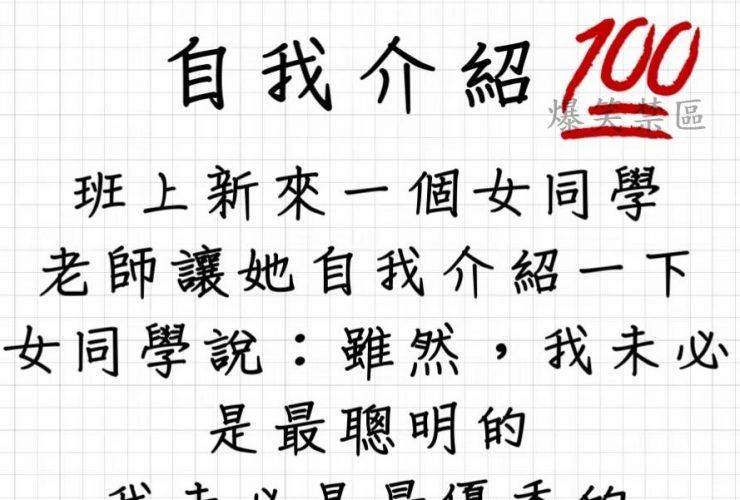 自我介紹
爆笑禁區
班上新來一個女同學
老師讓她自我介紹一下
女同學說：雖然，我未必
是最聰明的
我未必是最優秀的